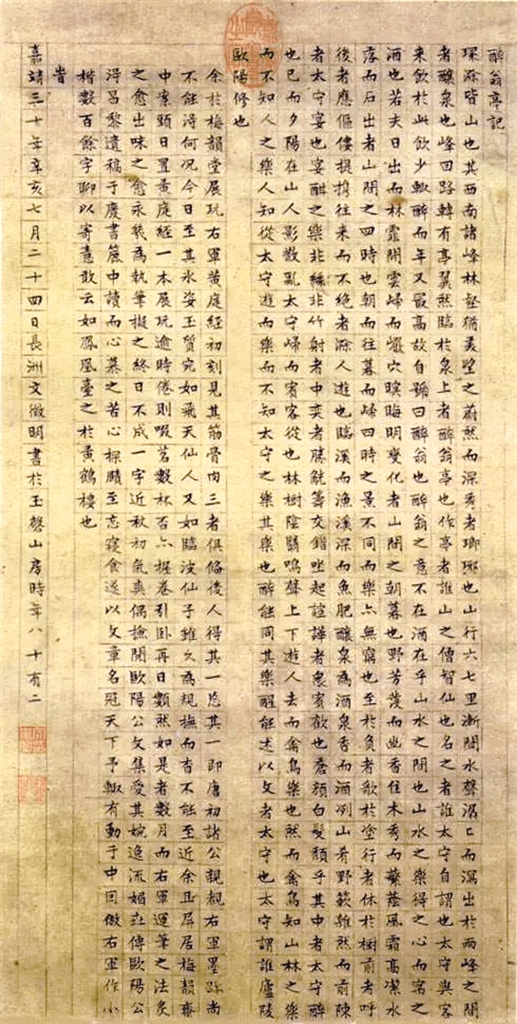 醉翁亭記
環滁皆山也其西南諸峰林壑猶美望之蔚然而深秀者瑯琊也山行六七里漸聞水聲潺〻而瀉出於兩峰之間
者釀泉也峰回路轉有亭翼然臨於泉上者醉翁亭也作亭者誰山之僧智仙也名之者誰太守自謂也太守與客
來飲於此飲少輒醉而年又最高故自號曰醉翁也醉翁之意不在酒在乎山水之間也山水之樂得之心而寓之
酒也若夫日出而林霏開雲歸而巖穴暝晦明變化者山間之朝暮也野芳發而幽香佳木秀而蘩蔭風霜高潔水
落而石出者山間之四時也朝而往暮而歸四時之景不同而樂亦無窮也至於負者歌於塗行者休於樹前者呼
後者應傴僂提攜往來而不絕者滁人遊也臨溪而漁溪深而魚肥釀泉為酒泉香而酒冽山肴野蔌雜然而前陳
者太守宴也宴酣之樂非絲非竹射者中奕者勝觥籌交錯坐起諠譁者衆賓歡也蒼顏白髮頹乎其中者太守醉
也已而夕陽在山人影散亂太守歸而賓客從也林樹陰翳鳴聲上下遊人去而禽鳥樂也然而禽鳥知山林之樂
而不知人之樂人知從太守遊而樂而不知太守之樂其樂也醉能同其樂醒能述以文者太守也太守謂誰廬陵
歐陽修也
余於梅韻堂展玩右軍黃庭經初刻見其筋骨肉三者俱備後人得其一忘其一即唐初諸公親覩右軍墨跡尚
不能得何況今日至其氷姿玉質宛如飛天仙人又如臨波仙子雖久為規撫而杳不能至近余屏居梅韻齋
中案頭日置黃庭經一本展玩逾時倦則啜茗數杯否亦握卷引臥再日顛然如是者數月而右軍運筆之法炙
之愈出味之愈永幾為執筆擬之終日不成一字近秋初氣爽偶撿閱歐陽公文集愛其婉逸流媚莊傳歐陽公
得昌黎遺稿于廢書簏中讀而心慕之苦心探賾至忘寢食遂以文章名冠天下予輒有動于中因倣右軍作小
楷數百餘字聊以寄意敢云如鳳凰臺之於黃鶴樓也
旹
嘉靖三十年辛亥七月二十四日長洲文徵明書於玉磬山房時年八十有二